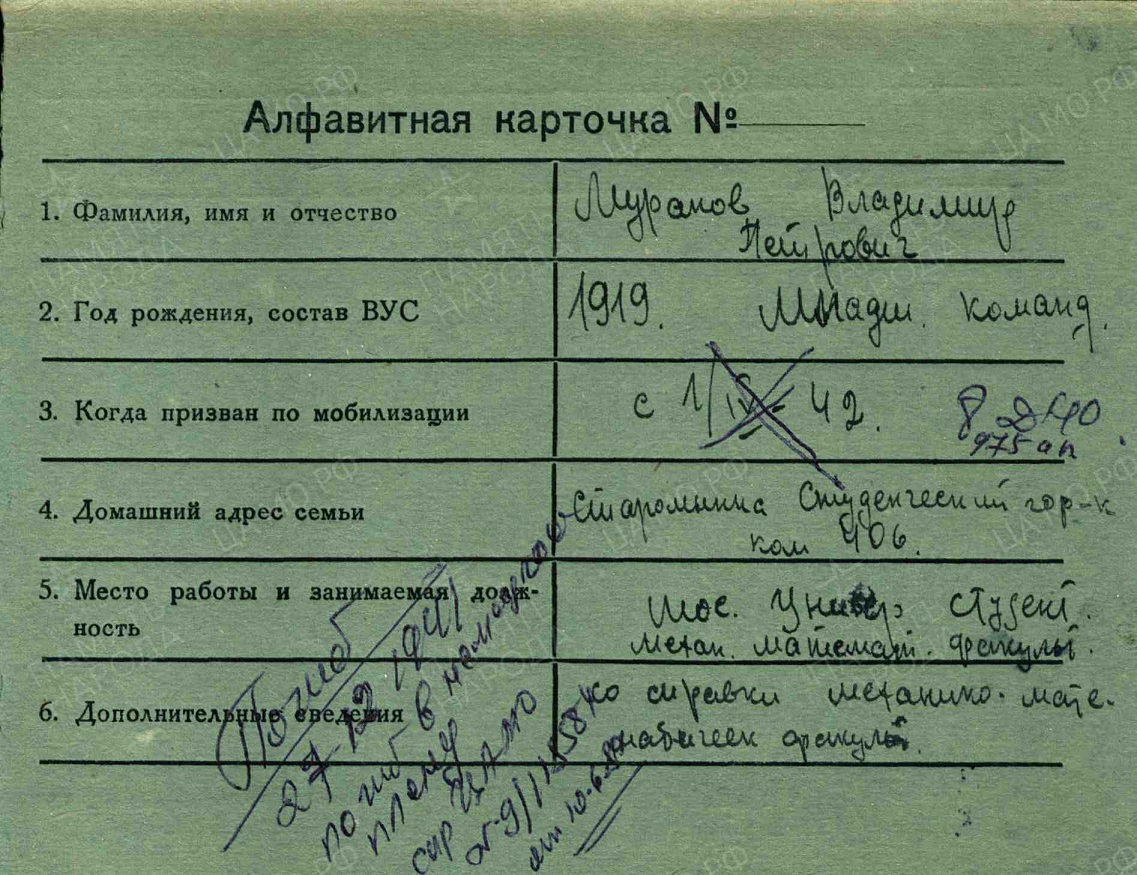 Алфавитная карточка №
1. Фамилия, имя и отчество
Муранов Владимир
Петрович
2. Год рождения, состав ВУС
1919. Младш. команд.
3. Когда призван по мобилизации
с 1/IV- 42.
8 ДНО
975 ап
4. Домашний адрес семьи
Студенческий гор-к
ком 406.
5. Место работы и занимаемая долж-
ность
Мос. Универ студент.
механ. математ. факульт.
6. Дополнительные сведения
справки механико-мате-
факульт.
Погиб
27-12 1941
погиб в немецком
плену
спр ЦАМО
от 10.6.